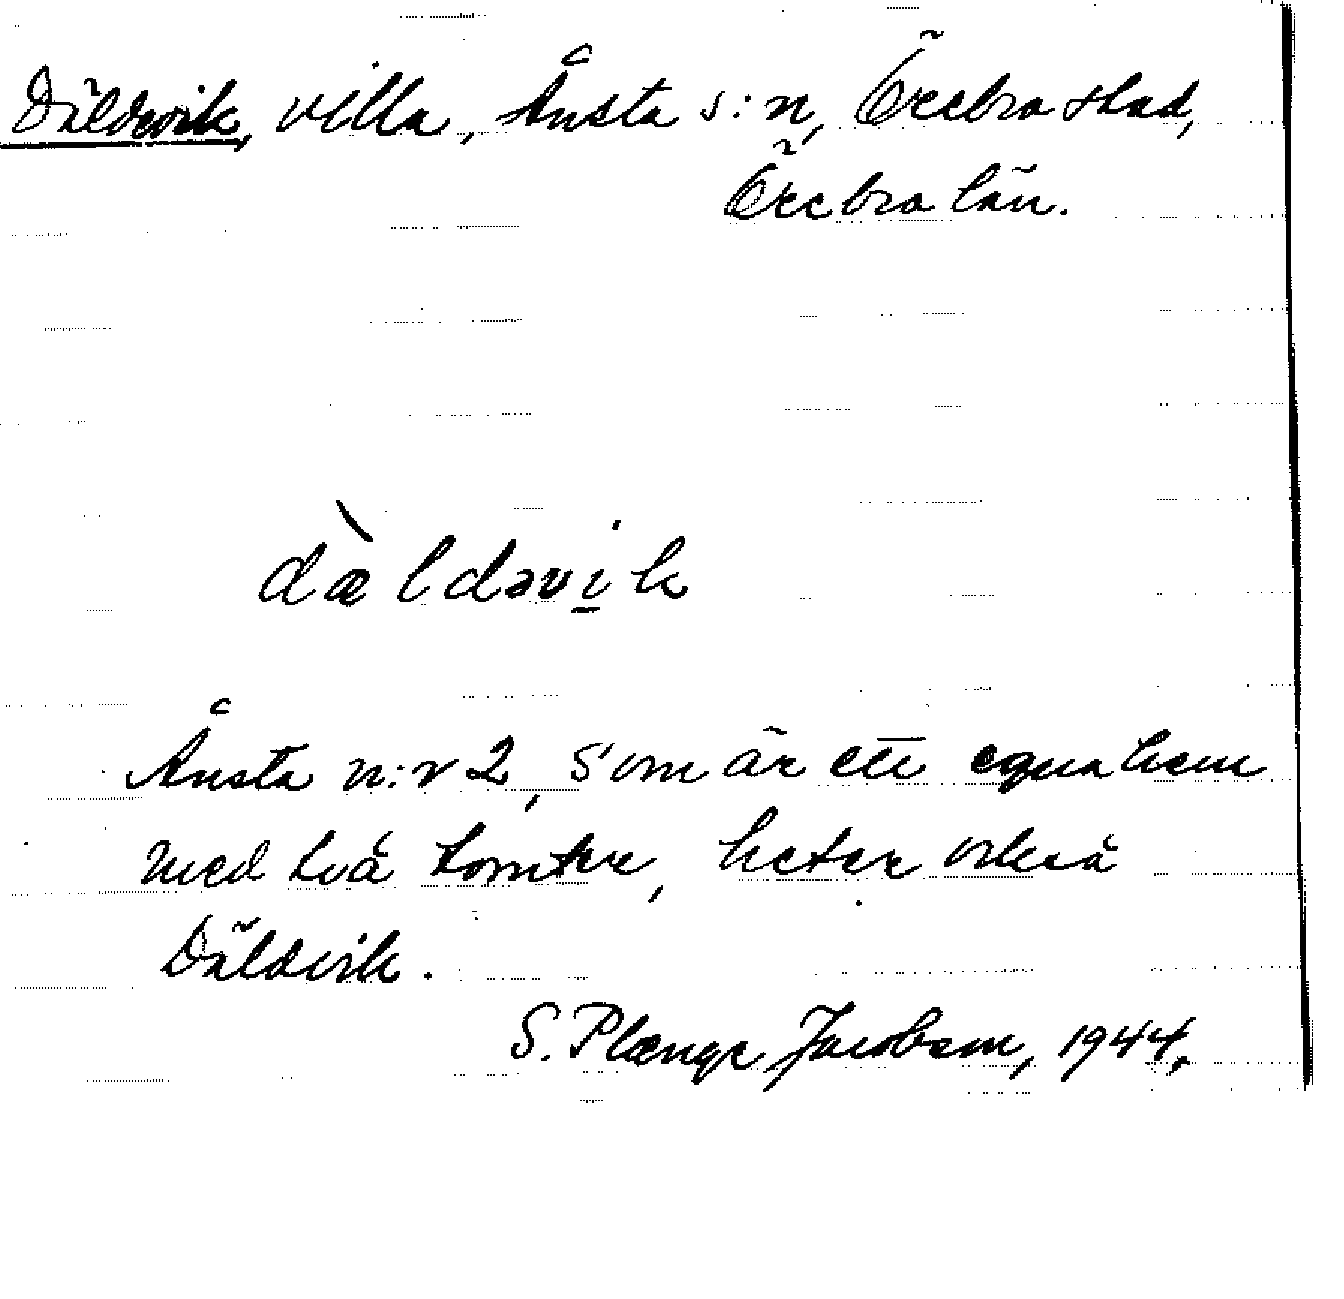 Däldevik, villa, Ånsta s:n, Örebro stad,
Örebro län.
dæ̀ldəvi̠k
Ånsta n:r 2, som är ett egna hem
med två tomter, heter också
Däldvik.
S. Plænge Jacobson, 1944.